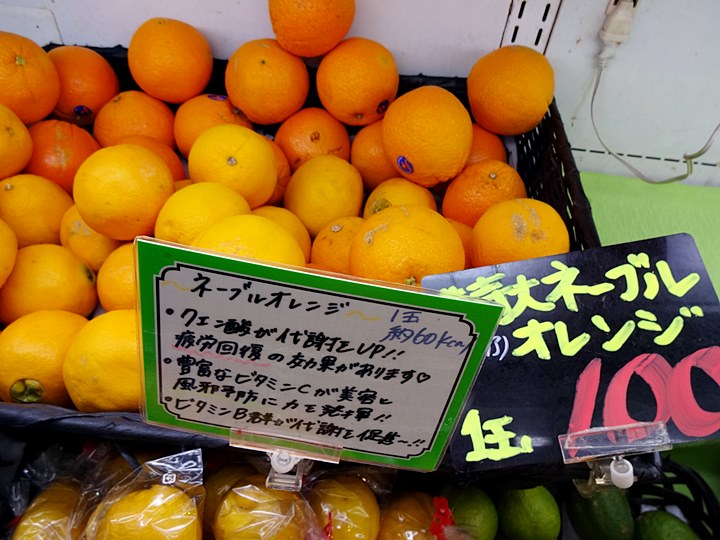 ネーブルオレンジ
1玉
約60Kcal
・クエン酸が代謝をUP!!
疲労回復の効果があります♡
・豊富なビタミンCが美容と
風邪予防に力を発揮!!
・ビタミンB群が代謝を促進〜!!
特大ネーブル
オレンジ
1玉
100